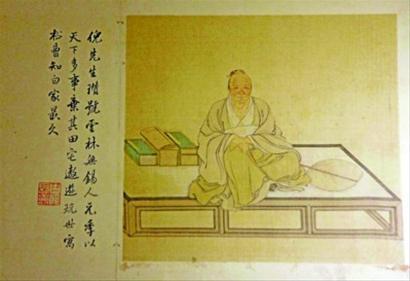 倪先生瓚號雲林無錫人元季以
天下多事棄其田宅遨遊玩世寓
松曹知白家最久